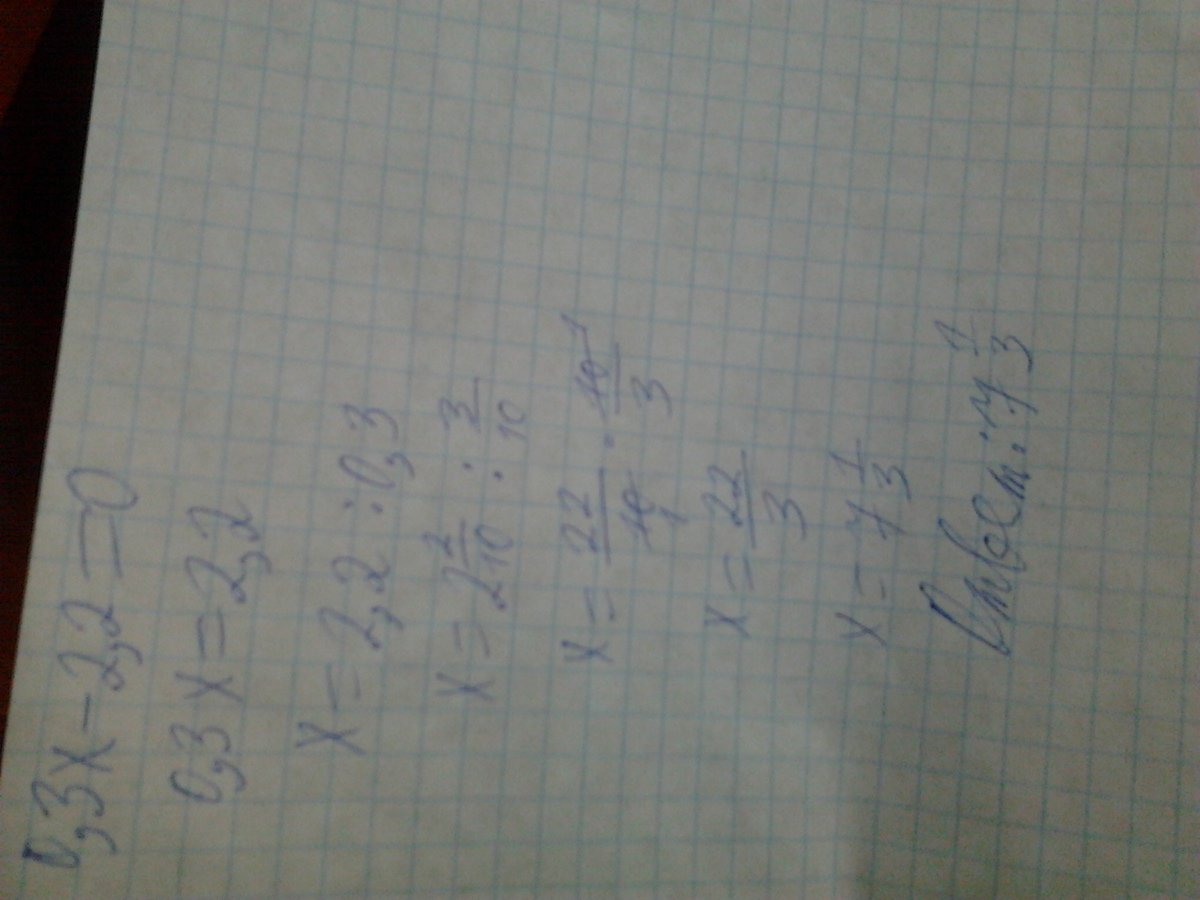 0,3x-2,2=0
0,3x=2,2
x=2,2:0,3
x=2 2/10 : 3/10
x= 22/10 · 10/3
x= 22/3
x=7 1/3
Ответ: 7 1/3